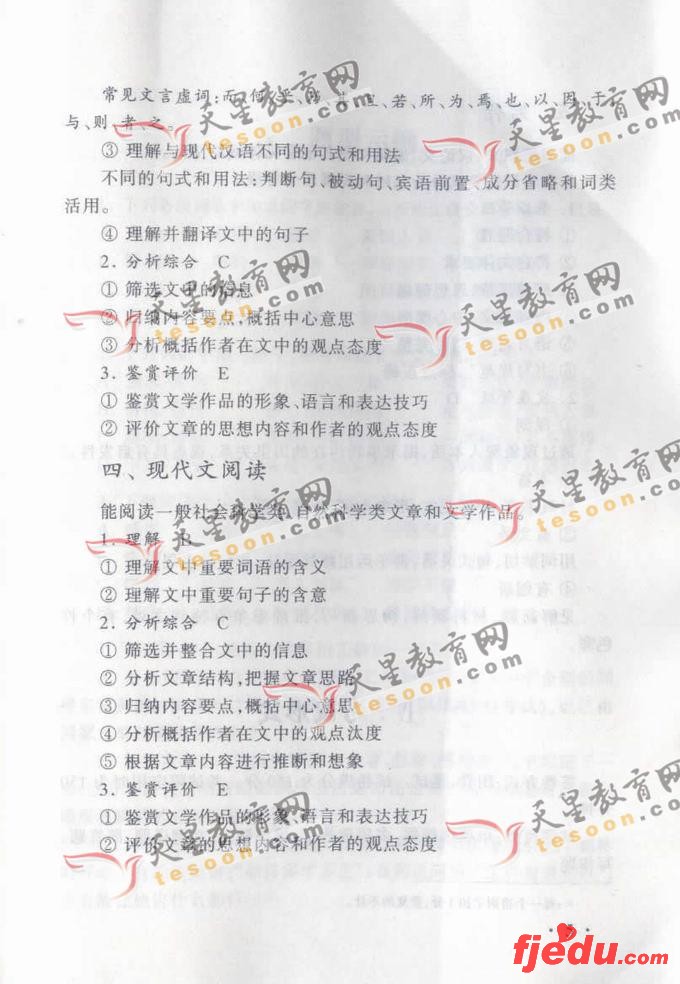 常见文言虚词:而、何、乎、乃、其、且、若、所、为、焉、也、以、因、于、
与、则、者、之。
③ 理解与现代汉语不同的句式和用法
不同的句式和用法:判断句、被动句、宾语前置、成分省略和词类
活用。
④ 理解并翻译文中的句子
2. 分析综合 C
① 筛选文中的信息
② 归纳内容要点,概括中心意思
③ 分析概括作者在文中的观点态度
3. 鉴赏评价 E
① 鉴赏文学作品的形象、语言和表达技巧
② 评价文章的思想内容和作者的观点态度
四、现代文阅读
能阅读一般社会科学类、自然科学类文章和文学作品。
1. 理解 B
① 理解文中重要词语的含义
② 理解文中重要句子的含意
2. 分析综合 C
① 筛选并整合文中的信息
② 分析文章结构,把握文章思路
③ 归纳内容要点,概括中心意思
④ 分析概括作者在文中的观点态度
⑤ 根据文章内容进行推断和想象
3. 鉴赏评价 E
① 鉴赏文学作品的形象、语言和表达技巧
② 评价文章的思想内容和作者的观点态度
天星教育网
tesoon.com
天星教育网
tesoon.com
天星教育网
tesoon.com
天星教育网
tesoon.com
天星教育网
tesoon.com
天星教育网
tesoon.com
天星教育网
tesoon.com
天星教育网
tesoon.com
天星教育网
tesoon.com
天星教育网
tesoon.com
fjedu.com